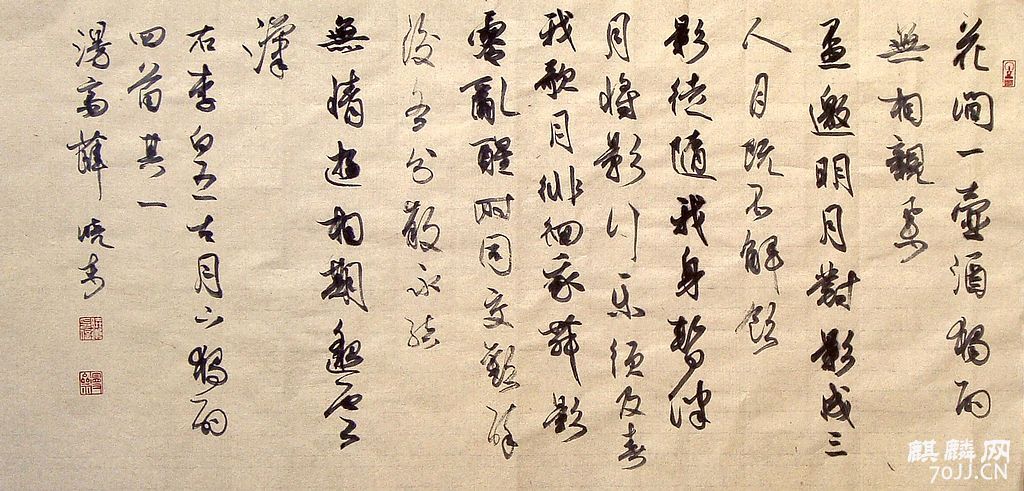 花間一壺酒獨酌
無相親舉
盃邀明月對影成三
人月既不解飲
影徒隨我身暫伴
月將影行乐須及春
我歌月徘徊我舞影
零亂醒時同交歡醉
後各分散永結
無情遊相期邈雲
漢
右李白五古月下獨酌
四首其一
漫薛曉
麒麟网
70JJ.CN